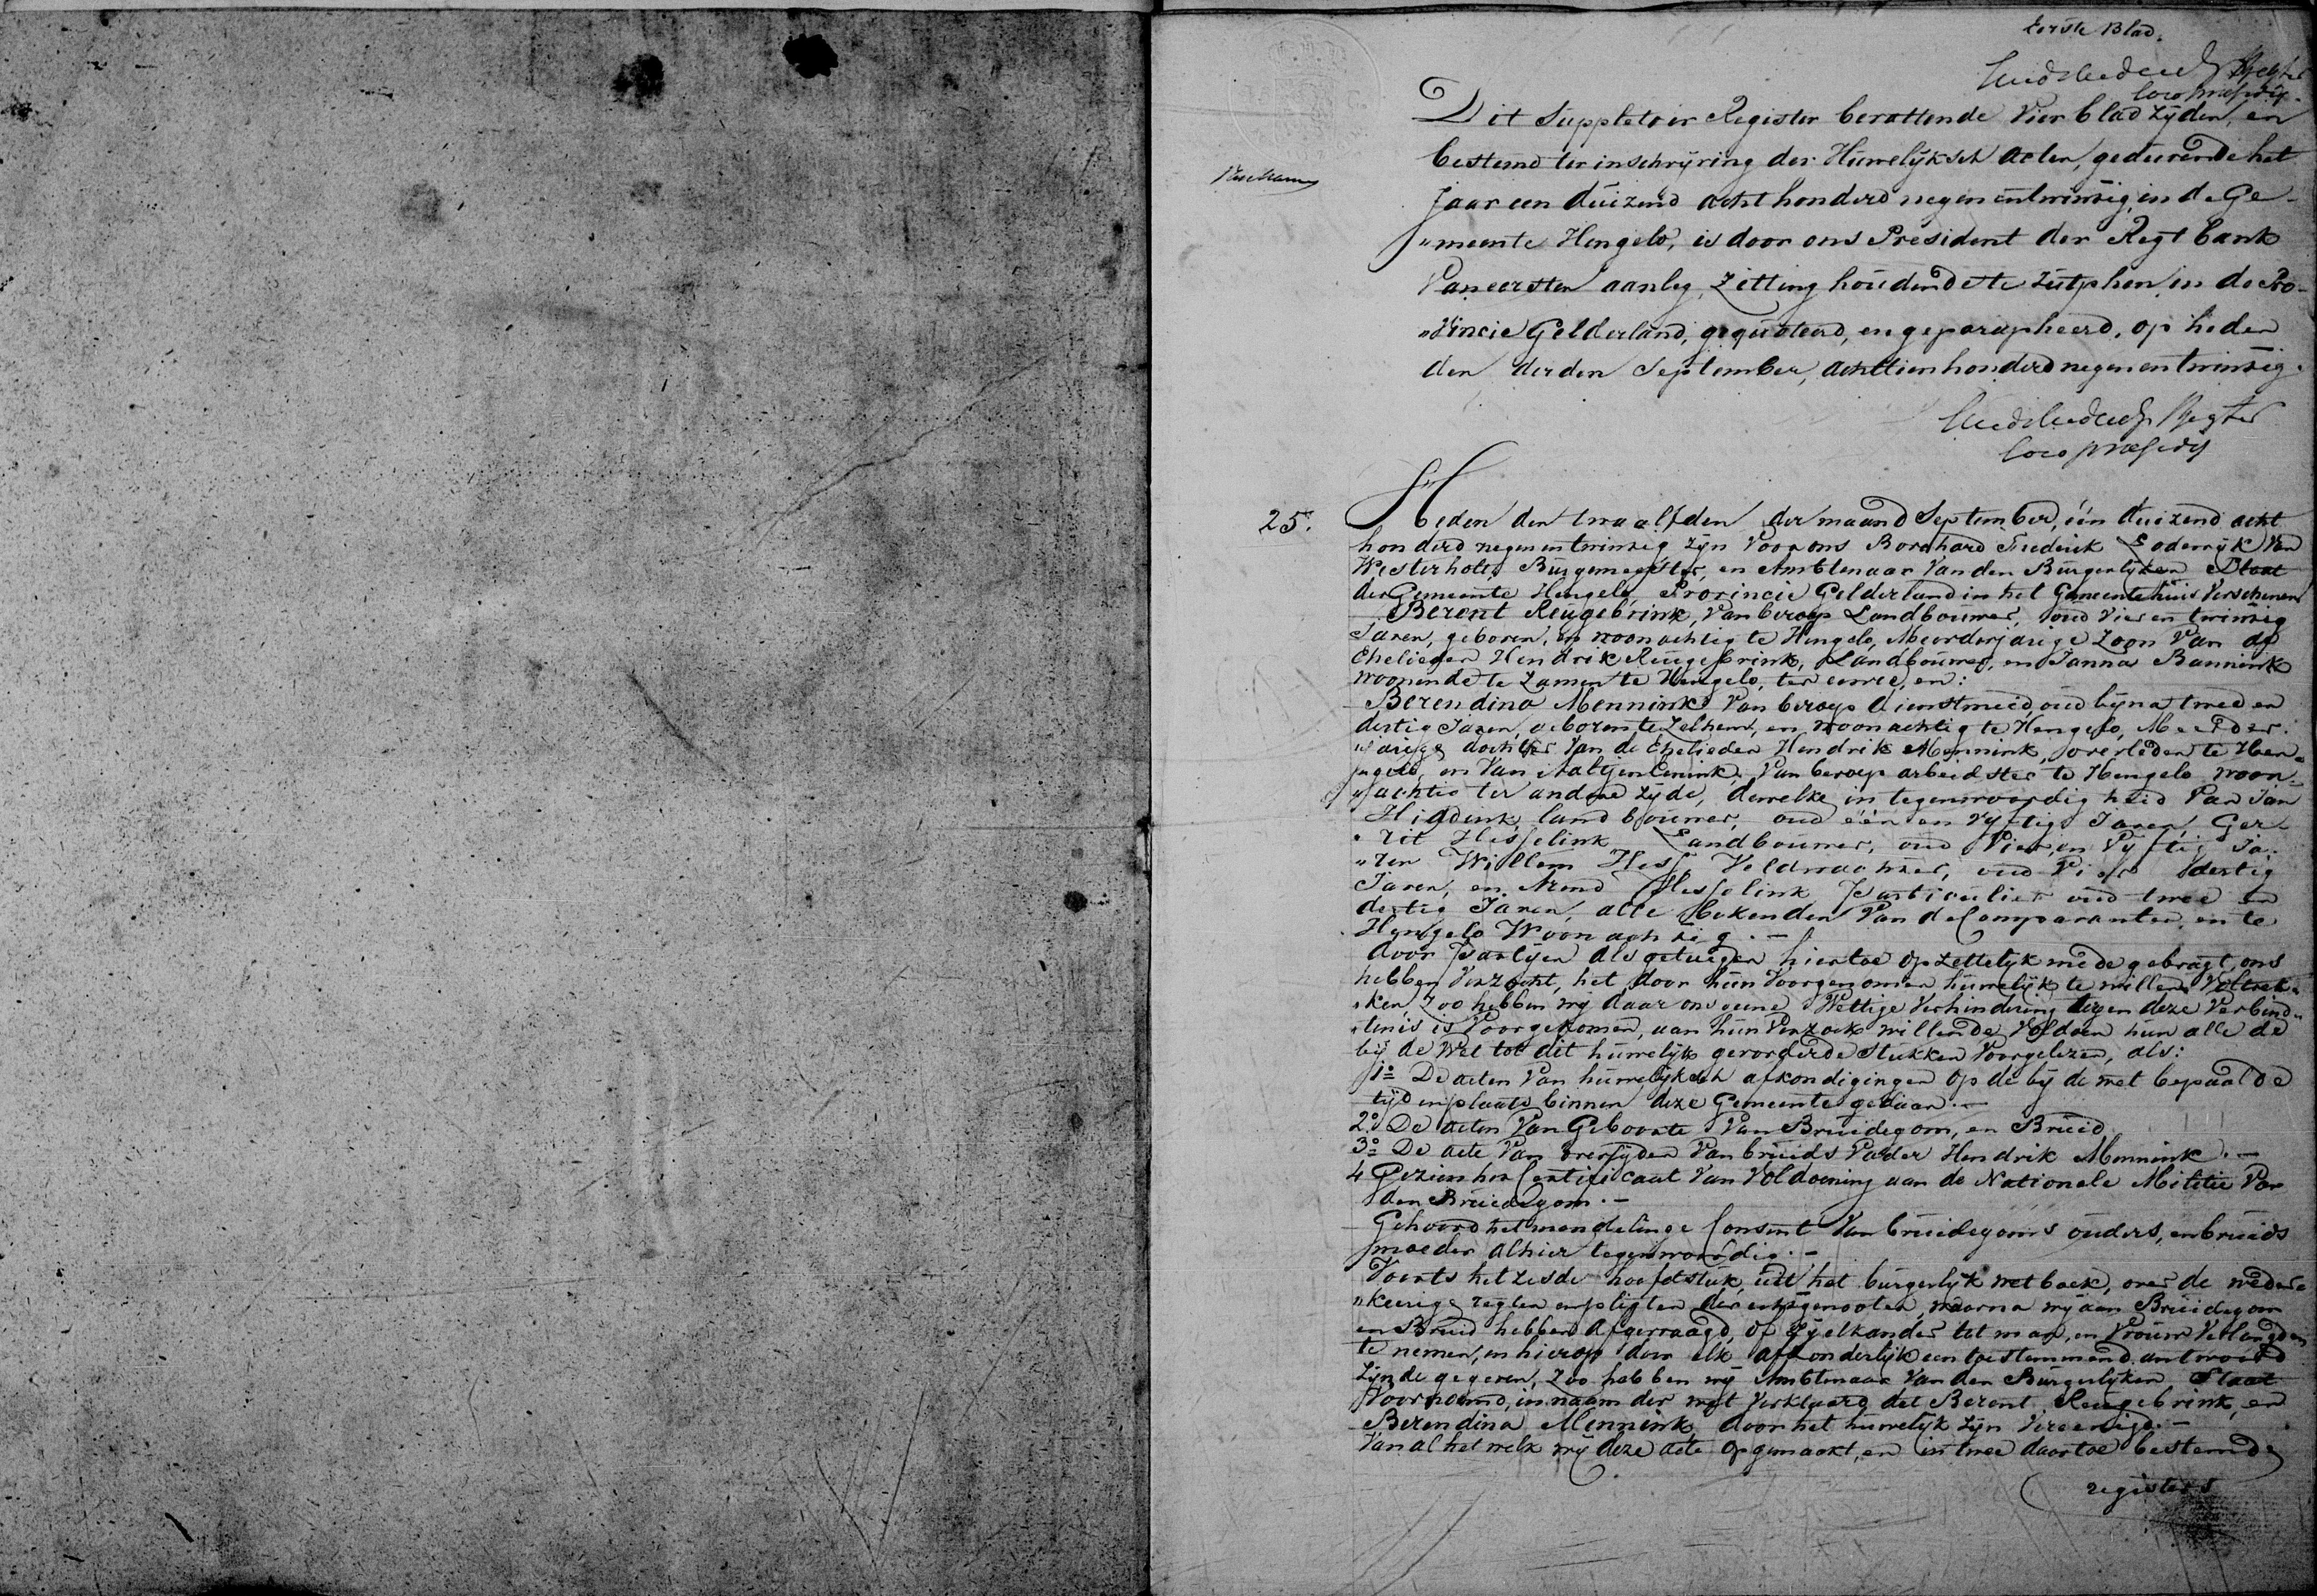 Eerste Blad.
Regter
loco præsidis
Dit Suppletoir Register bevattende Vier bladzijden, en
bestemd ter inschrijving der Huwelijksch Acten, gedurende het
Jaar een duizend acht honderd negen entwintig, in de Ge-
"meente Hengelo, is door ons President der Regtbank
Van eersten aanleg, Zitting houdende te Zutphen, in de Pro-
"Vincie Gelderland, gequoteerd, en geparapheerd, op heden
den derden September, achttienhonderd negen en twintig.
Regter
loco præsidis
25.
Heden den twaalfden der maand September, één duizend acht
honderd negen entwintig zijn Voor ons Borchard Frederik Lodewijk Van
Westerholt, Burgemeester, en Ambtenaar Van den Burgerlijken Staat
der Gemeente Hengelo, Provincie Gelderland in het Gemeentehuis Verschenen
Berent Reugebrink, Van beroep Landbouwer, oud Vier en twintig
Jaren, geboren, en woonachtig te Hengelo, Meerderjarige Zoon Van de
Ehelieden Hendrik Reugebrink, Landbouwer, en Janna Bannink
woonende te Zamen te Hengelo, ter eenre, en:
Berendina Mennink Van beroep dienstmeid, oud bijna twee en
dertig Jaren, geboren te Zelhem, en woonachtig te Hengelo, Meerder-
"jarige dochter Van de Ehelieden Hendrik Mennink, overleden te Hen-
"gelo, en Van Aaltjen Enink, Van beroep arbeidster te Hengelo woon-
"achtig ter andere Zijde, dewelke in tegenwoordigheid Van Jan
Hiddink, landbouwer, oud één en Vijftig Jaren, Ger-
"rit Hesselink Landbouwer, oud Vier en Vijftig Ja-
"ren Willem Hess Veldwachter, oud Vier dertig
Jaren, en Arend Hesselink Particulier oud twee en
dertig Jaren, alle bekenden Van de Comparanten, en te
Hengelo Woonachtig.—
door Partijen als getuigen hiertoe opzettelijk mede gebragt, ons
hebben Verzocht, het door hun Voorgenomen huwelijk te willen Voltrek-
"ken, Zoo hebben wij daar ons geene Wettige Verhindering tegen deze Verbind-
"tenis is Voorgekomen, aan hun Verzoek willende Voldoen hun alle de
bij de Wet tot dit huwelijk gevorderde Stukken Voorgelezen, als:
1o De acten Van huwelijksch afkondigingen op de bij de wet bepaalde
tijd en plaats binnen deze Gemeente gedaan.—
2o De acten Van Geboorte Van Bruidegom, en Bruid
3o De acte Van overlijden Van bruids Vader Hendrik Mennink.—
4 Gezien het Certificaat Van Voldoening aan de Nationale Militie Van
den Bruidegom.—
Gehoord het mondelinge Consent Van bruidegoms ouders, en bruids
moeder alhier tegenwoordig.—
Voorts het zesde hoofdstuk, uit het burgerlijk wetboek, over de weder-
"keerige regten en pligten der echtgenooten, waarna wij aan Bruidegom
en Bruid hebben Afgevraagd, of Zij elkander tot man, en Vrouw Verlangden
te nemen, en hierop door elk afzonderlijk een toestemmend antwoord
Zijnde gegeven, Zoo hebben wij Ambtenaar Van den Burgerlijken Staat
Voornoemd, in naam der wet Verklaard, dat Berent Reugebrink, en
Berendina Mennink, door het huwelijk Zijn Vereenigd.—
Van al het welk wij deze acte opgemaakt, en in twee daartoe bestemde
registers